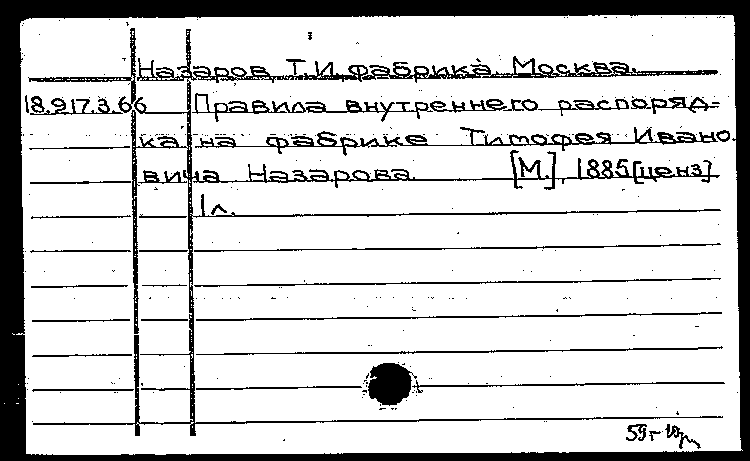 Назаров, Т.И. фабрика. Москва.
18.917.3.66 Правила внутреннего распоряд-
ка на фабрике Тимофея Ивано
вича Назарова. [М.], 1885[ценз]
1 л.
59г-